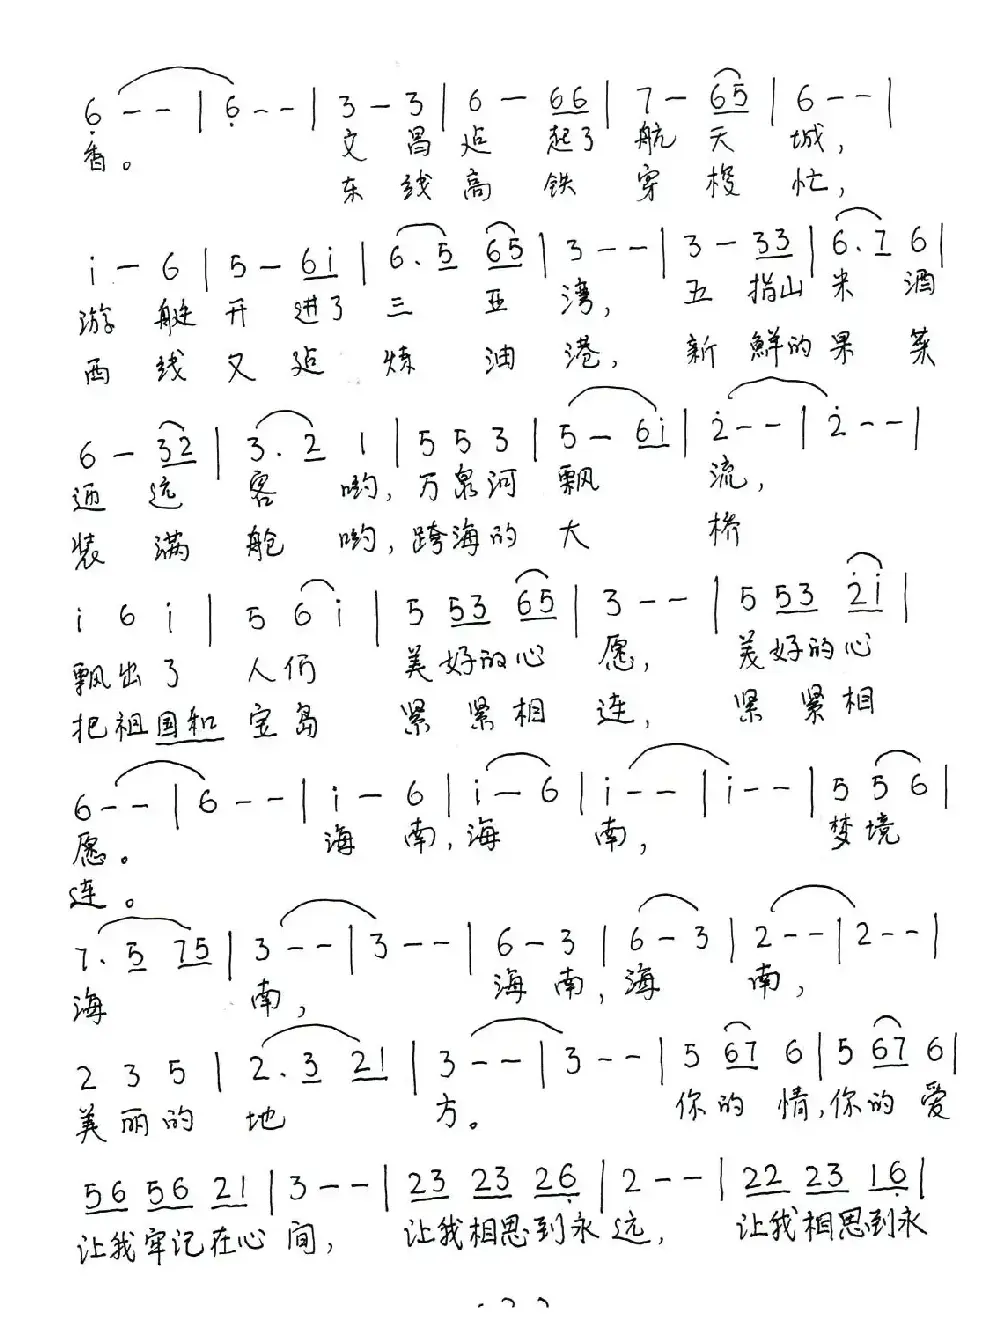 6 - - | 6 - - | 3 - 3 | 6 - 66 | 7 - 65 | 6 - - |
香。 文 昌 建 起了 航 天 城,
东 线 高 铁 穿 梭 忙,
i - 6 | 5 - 6i | 6. 5 65 | 3 - - | 3 - 33 | 6. 7 6 |
游 艇 开 进了 三 亚 湾, 五 指山 米 酒
西 线 又 建 炼 油 港, 新 鲜的 果 菜
6 - 32 | 3. 2 1 | 5 5 3 | 5 - 6i | 2 - - | 2 - - |
迎 远 客 哟, 万泉河 飘 流,
装 满 舱 哟, 跨海的 大 桥
i 6 i | 5 6 i | 5 53 65 | 3 - - | 5 53 2i |
飘出了 人们 美好的心 愿, 美好的心
把祖国和 宝岛 紧 紧相 连, 紧 紧相
6 - - | 6 - - | i - 6 | i - 6 | i - - | i - - | 5 5 6 |
愿。 海 南, 海 南, 梦境
连。
7. 5 75 | 3 - - | 3 - - | 6 - 3 | 6 - 3 | 2 - - | 2 - - |
海 南, 海 南, 海 南,
2 3 5 | 2. 3 21 | 3 - - | 3 - - | 5 67 6 | 5 67 6 |
美丽的 地 方。 你的 情, 你的 爱
56 56 21 | 3 - - | 23 23 26 | 2 - - | 22 23 16 |
让我牢记在心 间, 让我相思到永 远, 让我相思到永